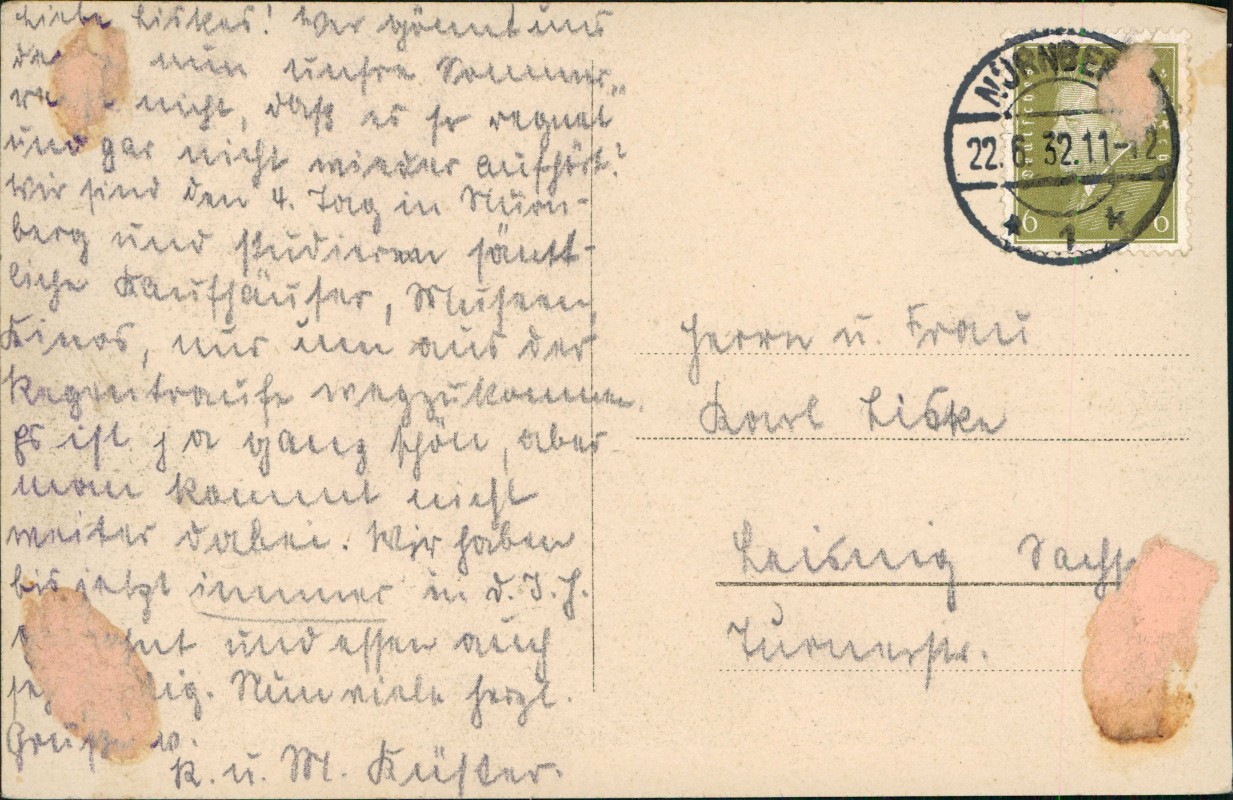 Liebe Liskes! Wer gönnt uns
nun unsre Sommer„
nicht, daß es so regnet
und gar nicht wieder aufhört?
Wir sind den 4. Tag in Nürn-
berg und studieren sämt-
liche Kaufhäuser, Museen,
Kinos, nur um aus der
Regentraufe wegzukommen.
Es ist ja ganz schön, aber
man kommt nicht
weiter dabei. Wir haben
bis jetzt immer in d. J. H.
und essen auch
Nun viele herzl.
Grüße v.
K. u. M. Küster.
NÜRNBE
22.6.32.11-12
* 1 *
Deutsches
6 6
Herrn u. Frau
Karl Liske
Leisnig Sachs
Turnerstr.